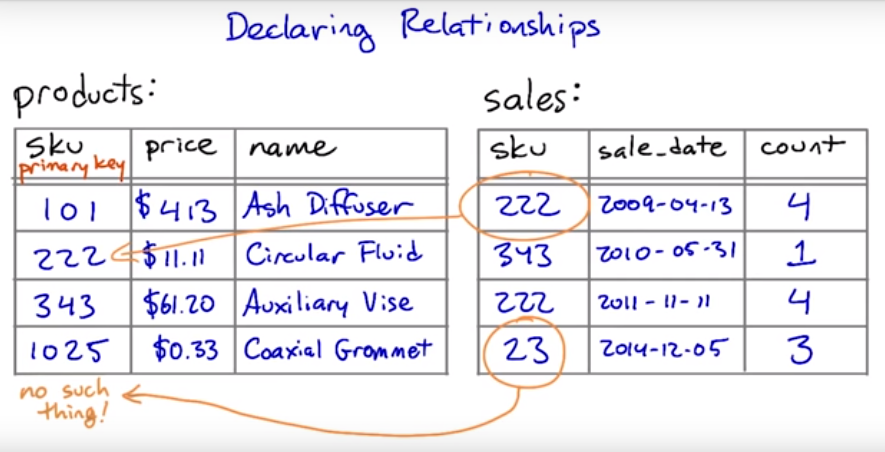 Declaring Relationships
products:
sku price name
primary key
101 $413 Ash Diffuser
222 $11.11 Circular Fluid
343 $61.20 Auxiliary Vise
1025 $0.33 Coaxial Grommet
no such
thing!
sales:
sku sale_date count
222 2009-04-13 4
343 2010-05-31 1
222 2011-11-11 4
23 2014-12-05 3